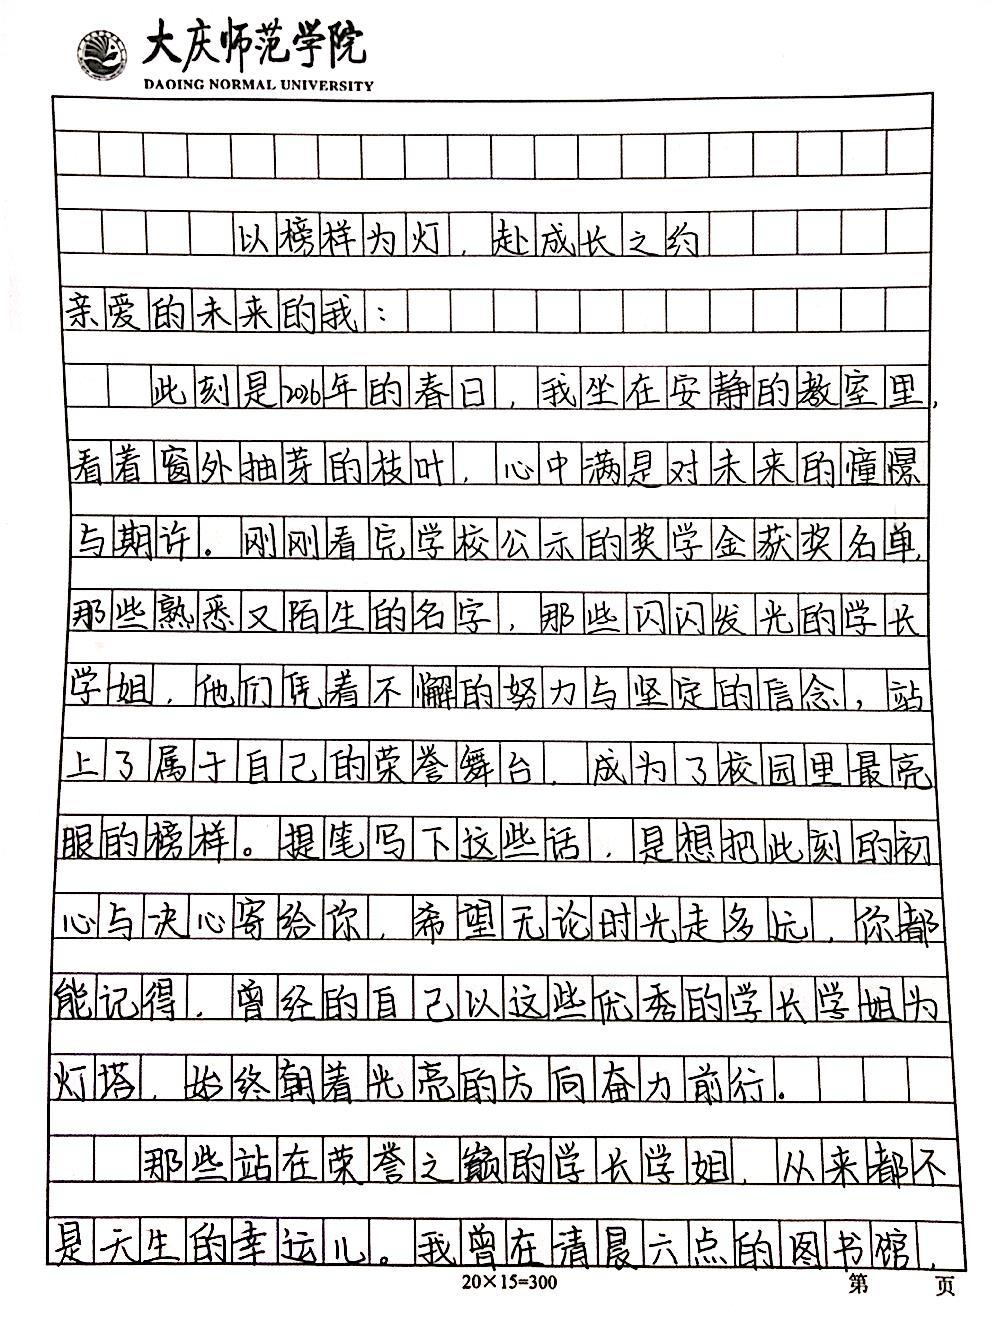 大庆师范学院
DAQING NORMAL UNIVERSITY
以榜样为灯，赴成长之约
亲爱的未来的我：
此刻是2026年的春日，我坐在安静的教室里，
看着窗外抽芽的枝叶，心中满是对未来的憧憬
与期许。刚刚看完学校公示的奖学金获奖名单，
那些熟悉又陌生的名字，那些闪闪发光的学长
学姐，他们凭着不懈的努力与坚定的信念，站
上了属于自己的荣誉舞台，成为了校园里最亮
眼的榜样。提笔写下这些话，是想把此刻的初
心与决心寄给你，希望无论时光走多远，你都
能记得，曾经的自己以这些优秀的学长学姐为
灯塔，始终朝着光亮的方向奋力前行。
那些站在荣誉之巅的学长学姐，从来都不
是天生的幸运儿。我曾在清晨六点的图书馆，
20×15=300
第 页